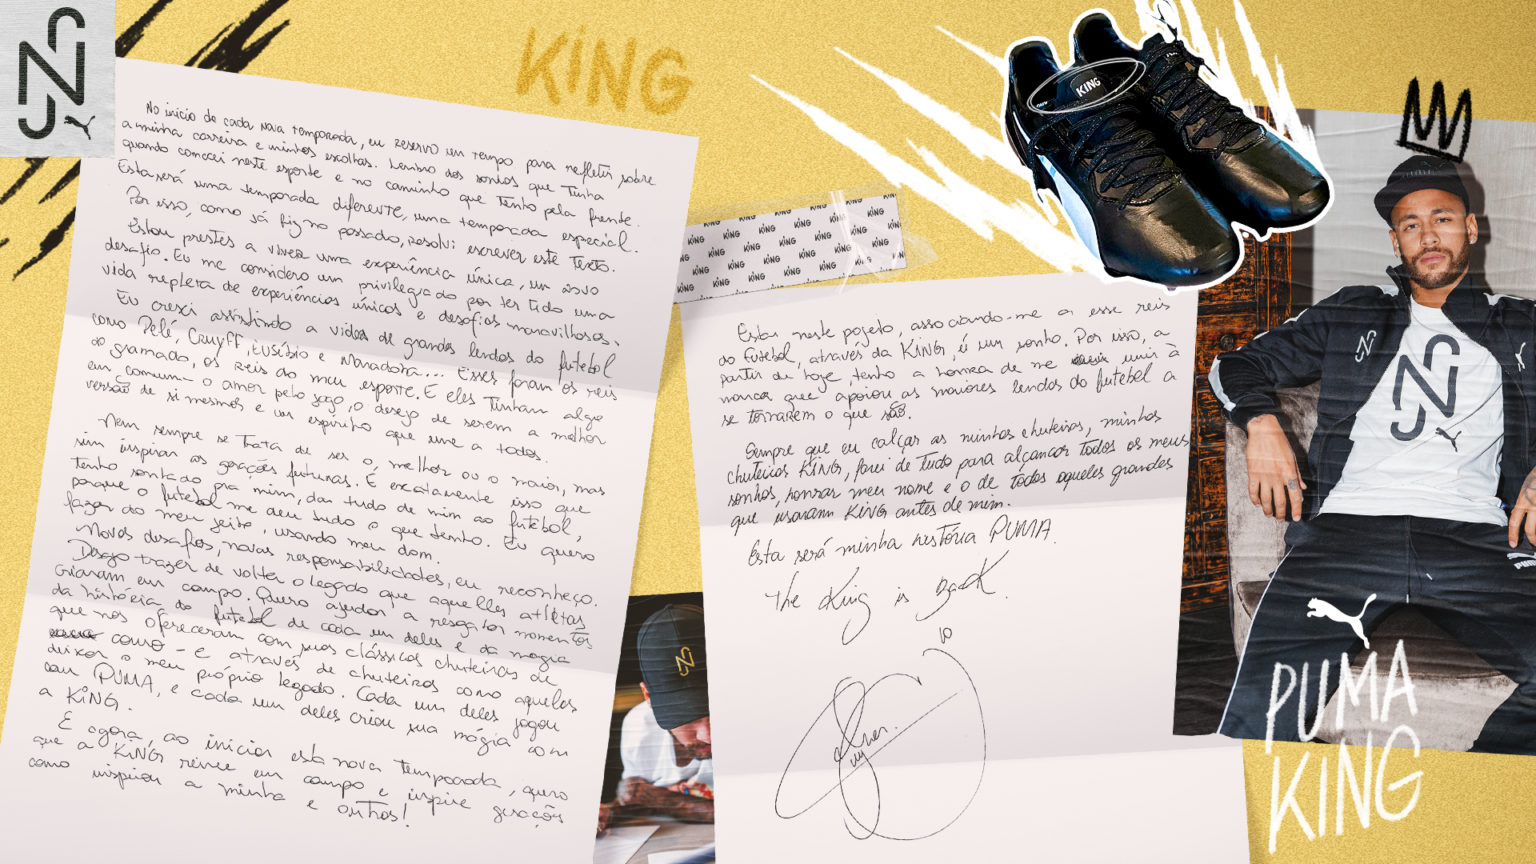 KING
No início de cada nova temporada, eu reservo um tempo para refletir sobre
a minha carreira e minhas escolhas. Lembro dos sonhos que tinha
quando comecei neste esporte e no caminho que tenho pela frente.
Esta será uma temporada diferente, uma temporada especial.
Por isso, como já fiz no passado, resolvi escrever este texto.
Estou prestes a viver uma experiência única, um novo
desafio. Eu me considero um privilegiado por ter tido uma
vida repleta de experiências únicas e desafios maravilhosos.
Eu cresci assistindo a vídeos de grandes lendas do futebol
como Pelé, Cruyff, Eusébio e Maradona... Esses foram os reis
do gramado, os reis do meu esporte. E eles tinham algo
em comum - o amor pelo jogo, o desejo de serem a melhor
versão de si mesmos e um espírito que une a todos.
Nem sempre se trata de ser o melhor ou o maior, mas
sim inspirar as gerações futuras. É exatamente isso que
tenho sonhado pra mim, dar tudo de mim ao futebol,
porque o futebol me deu tudo o que tenho. Eu quero
fazer do meu jeito, usando meu dom.
Novos desafios, novas responsabilidades, eu reconheço.
Desejo trazer de volta o legado que aqueles atletas
criaram em campo. Quero ajudar a resgatar momentos
da história do futebol de cada um deles e da magia
que nos ofereceram com suas clássicas chuteiras de
couro - e através de chuteiras como aquelas
deixar o meu próprio legado. Cada um deles jogou
com PUMA, e cada um deles criou sua mágia com
a KING.
E agora, ao iniciar esta nova temporada, quero
que a KING reine em campo e inspire gerações
como inspirou a minha e outras!
KING KING KING KING KING
Estar neste pojeto, associando-me a esse reis
do futebol, através da KING, é um sonho. Por isso, a
partir de hoje, tenho a honra de me unir à
marca que apoiou as maiores lendas do futebol a
se tornarem o que são.
Sempre que eu calçar as minhas chuteiras, minhas
chuteiras KING, farei de tudo para alcançar todos os meus
sonhos, honrar meu nome e o de todos aqueles grandes
que usaram KING antes de mim.
Esta será minha história PUMA.
The King is Back.
10
KING
PUMA
PUMA
KING